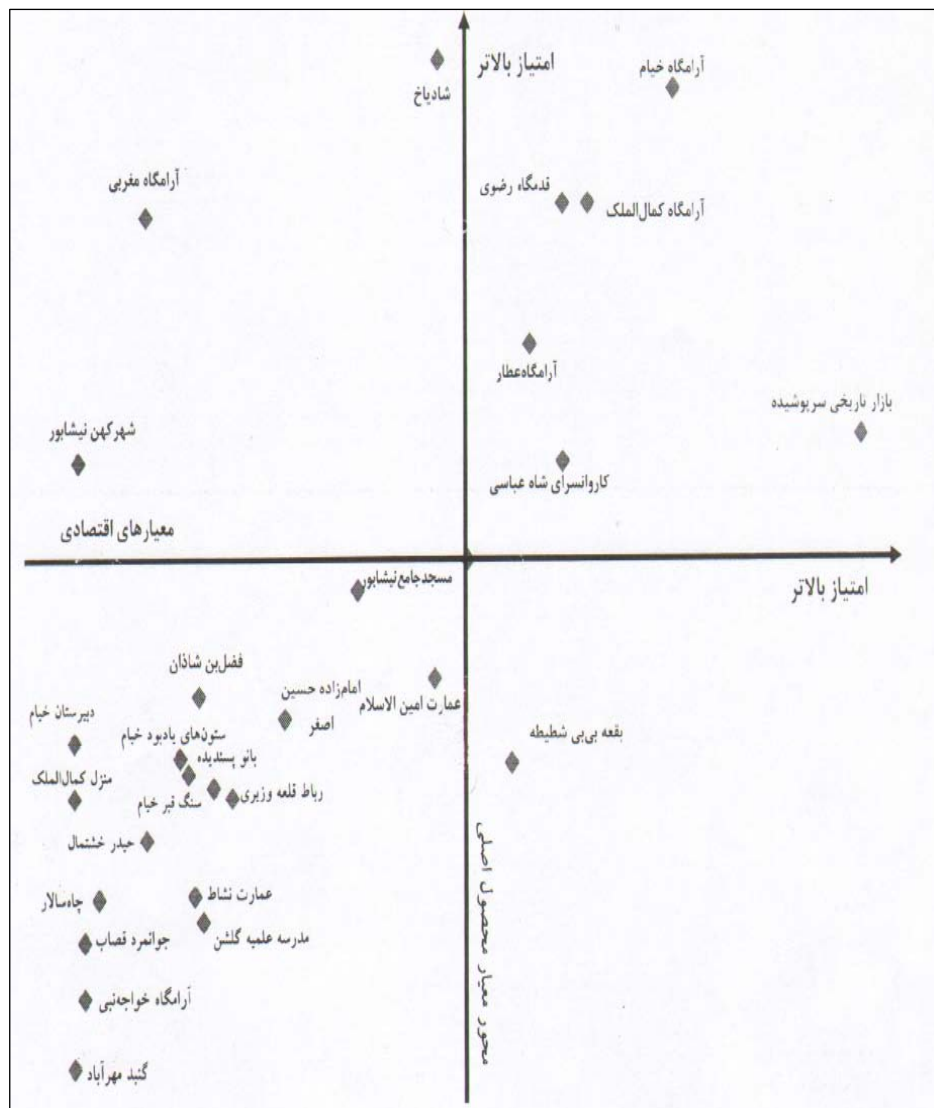 امتیاز بالاتر
آرامگاه خیام
شادیاخ
آرامگاه مغربی
قدمگاه رضوی
آرامگاه کمال‌الملک
آرامگاه عطار
بازار تاریخی سرپوشیده
شهر کهن نیشابور
کاروانسرای شاه عباسی
معیارهای اقتصادی
امتیاز بالاتر
مسجد جامع نیشابور
فضل‌بن شاذان
امام‌زاده حسین
اصغر
عمارت امین الاسلام
دبیرستان خیام
ستون‌های یادبود خیام
بانو پسندیده
بقعه بی‌بی شطیطه
منزل کمال‌الملک
سنگ قبر خیام
رباط قلعه وزیری
حیدر خشتمال
عمارت نشاط
چاه‌سالار
مدرسه علمیه گلشن
جوانمرد قصاب
آرامگاه خواجه‌نبی
گنبد مهرآباد
محور معیار محصول اصلی